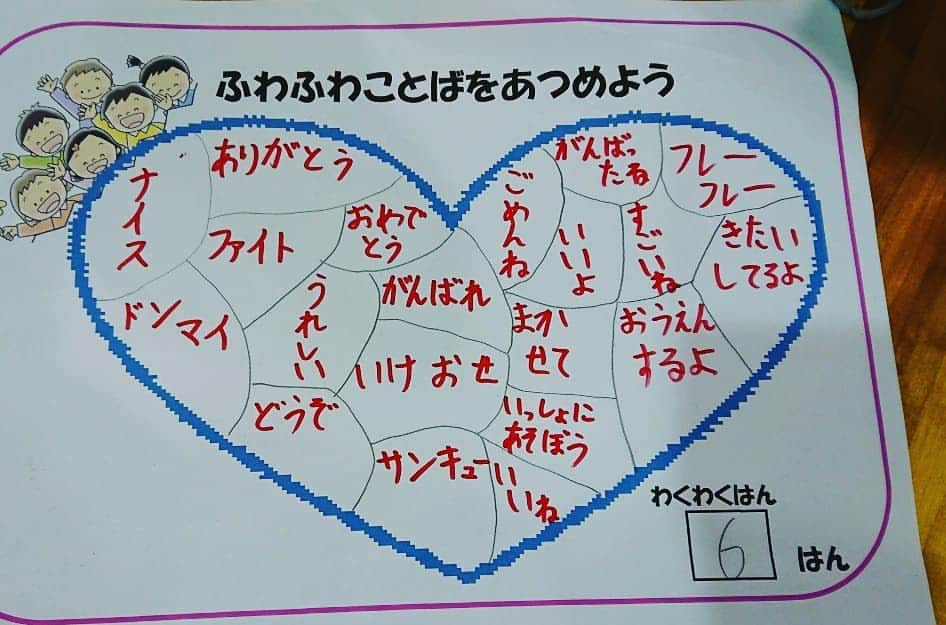 ふわふわことばをあつめよう
ナイス
ありがとう
ファイト
おわで
とう
ドンマイ
うれしい
がんばれ
いけおせ
どうぞ
サンキュー
ごめんね
いいよ
がんばっ
たね
フレー
フレー
すごいね
きたい
してるよ
まか
せて
おうえん
するよ
いっしょに
あそぼう
いいね
わくわくはん
6 はん